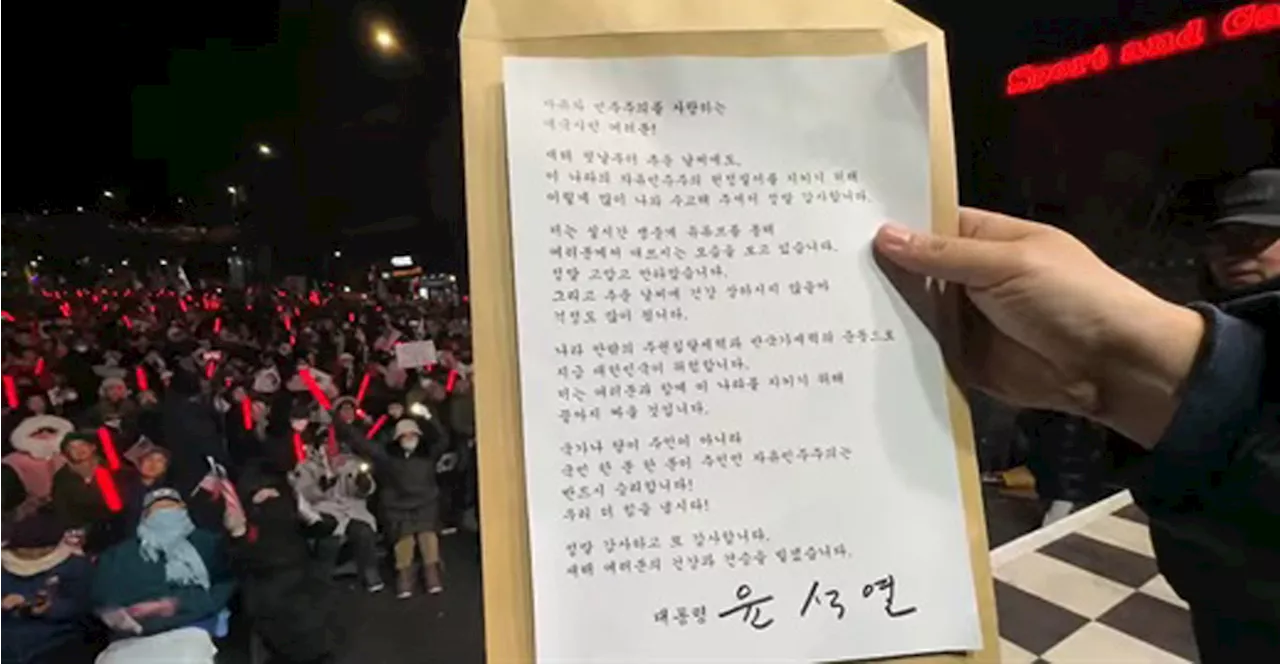 자유와 민주주의를 사랑하는
애국시민 여러분!
새해 첫날부터 추운 날씨에도,
이 나라의 자유민주주의 헌정질서를 지키기 위해
이렇게 많이 나와 수고해 주셔서 정말 감사합니다.
저는 실시간 생중계 유튜브를 통해
여러분께서 애쓰시는 모습을 보고 있습니다.
정말 고맙고 안타깝습니다.
그리고 추운 날씨에 건강 상하시지 않을까
걱정도 많이 됩니다.
나라 안팎의 주권침탈세력과 반국가세력의 준동으로
지금 대한민국이 위험합니다.
저는 여러분과 함께 이 나라를 지키기 위해
끝까지 싸울 것입니다.
국가나 당이 주인이 아니라
국민 한 분 한 분이 주인인 자유민주주의는
반드시 승리합니다!
우리 더 힘을 냅시다!
정말 감사하고 또 감사합니다.
새해 여러분의 건강과 건승을 빌겠습니다.
대통령 윤석열
Sport and